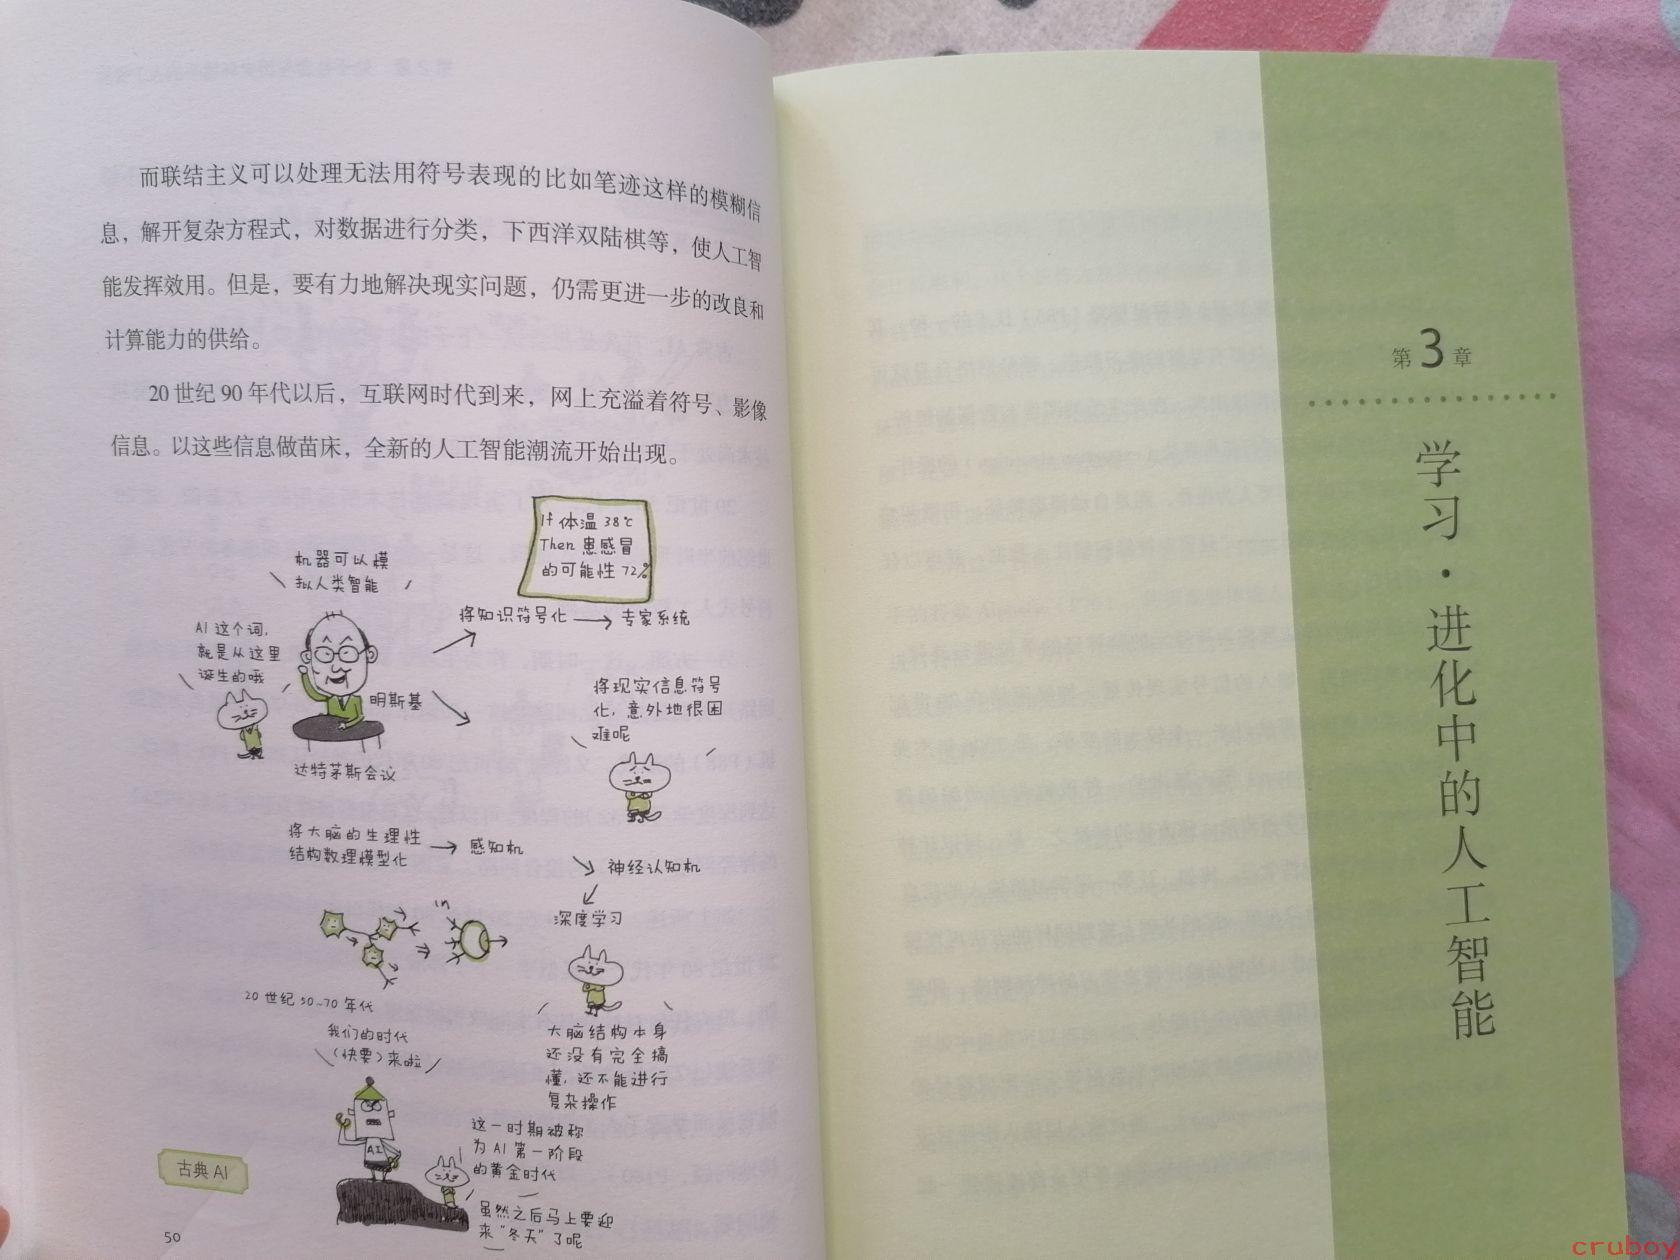 而联结主义可以处理无法用符号表现的比如笔迹这样的模糊信
息，解开复杂方程式，对数据进行分类，下西洋双陆棋等，使人工智
能发挥效用。但是，要有力地解决现实问题，仍需更进一步的改良和
计算能力的供给。
20世纪90年代以后，互联网时代到来，网上充溢着符号、影像
信息。以这些信息做苗床，全新的人工智能潮流开始出现。
If 体温 38℃
Then 患感冒
的可能性 72%
机器可以模
拟人类智能
将知识符号化
专家系统
AI 这个词，
就是从这里
诞生的哦
明斯基
达特茅斯会议
将现实信息符号
化，意外地很困
难呢
将大脑的生理性
结构数理模型化
感知机
神经认知机
深度学习
in
20世纪50~70年代
我们的时代
（快要）来啦
大脑结构本身
还没有完全搞
懂，还不能进行
复杂操作
A.I.
这一时期被称
为AI第一阶段
的黄金时代
虽然之后马上要迎
来“冬天”了呢
古典 AI
50
第3章
学习·进化中的人工智能
cruboy